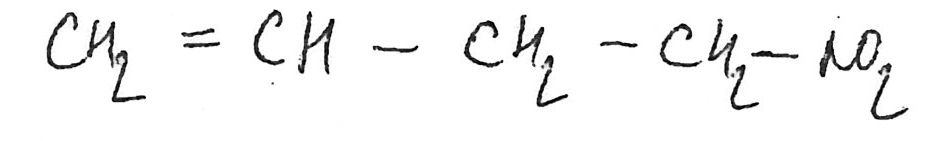 CH₂ = CH – CH₂ – CH₂ – NO₂